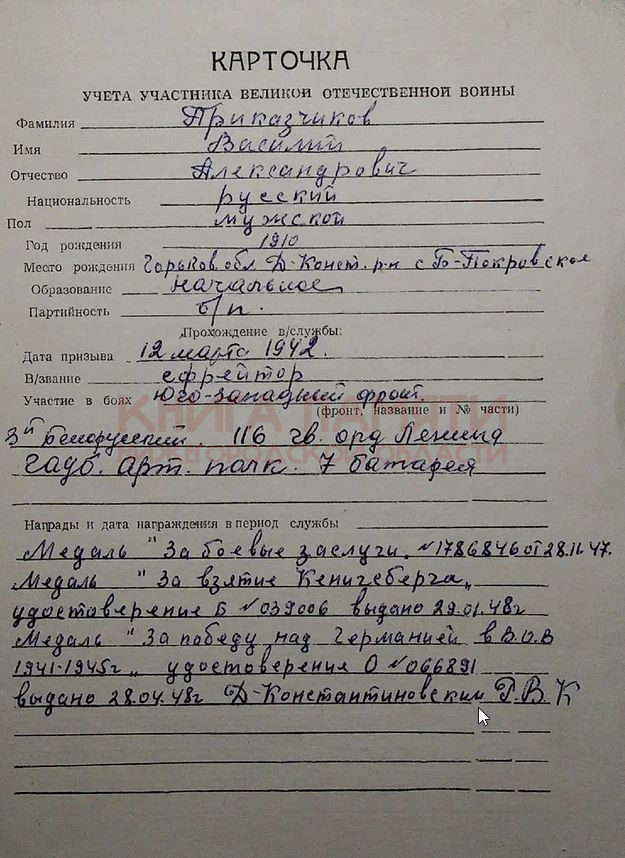 КАРТОЧКА
УЧЕТА УЧАСТНИКА ВЕЛИКОЙ ОТЕЧЕСТВЕННОЙ ВОЙНЫ
Фамилия Приказчиков
Имя Василий
Отчество Александрович
Национальность русский
Пол мужской
Год рождения 1910
Место рождения Горьков. обл Д-Конст. р-н с Б-Покровское
Образование начальное
Партийность б/п.
Прохождение в/службы:
Дата призыва 12 марта 1942.
В/звание ефрейтор
Участие в боях Юго-западный фронт.
(фронт, название и № части)
КНИГА ПАМЯТИ
НИЖЕГОРОДСКОЙ ОБЛАСТИ
3й Белорусский. 116 гв. орд Ленина
гадб. арт. полк. 7 батарея
Награды и дата награждения в период службы
Медаль "За боевые заслуги. №1786846 от 28.11.47.
Медаль "За взятие Кенигсберга„
удостоверение Б №039006 выдано 29.01.48г
Медаль "За победу над Германией в В.О.В
1941-1945г„ удостоверение О №066891
выдано 28.04.48г Д-Константиновским Р.В.К